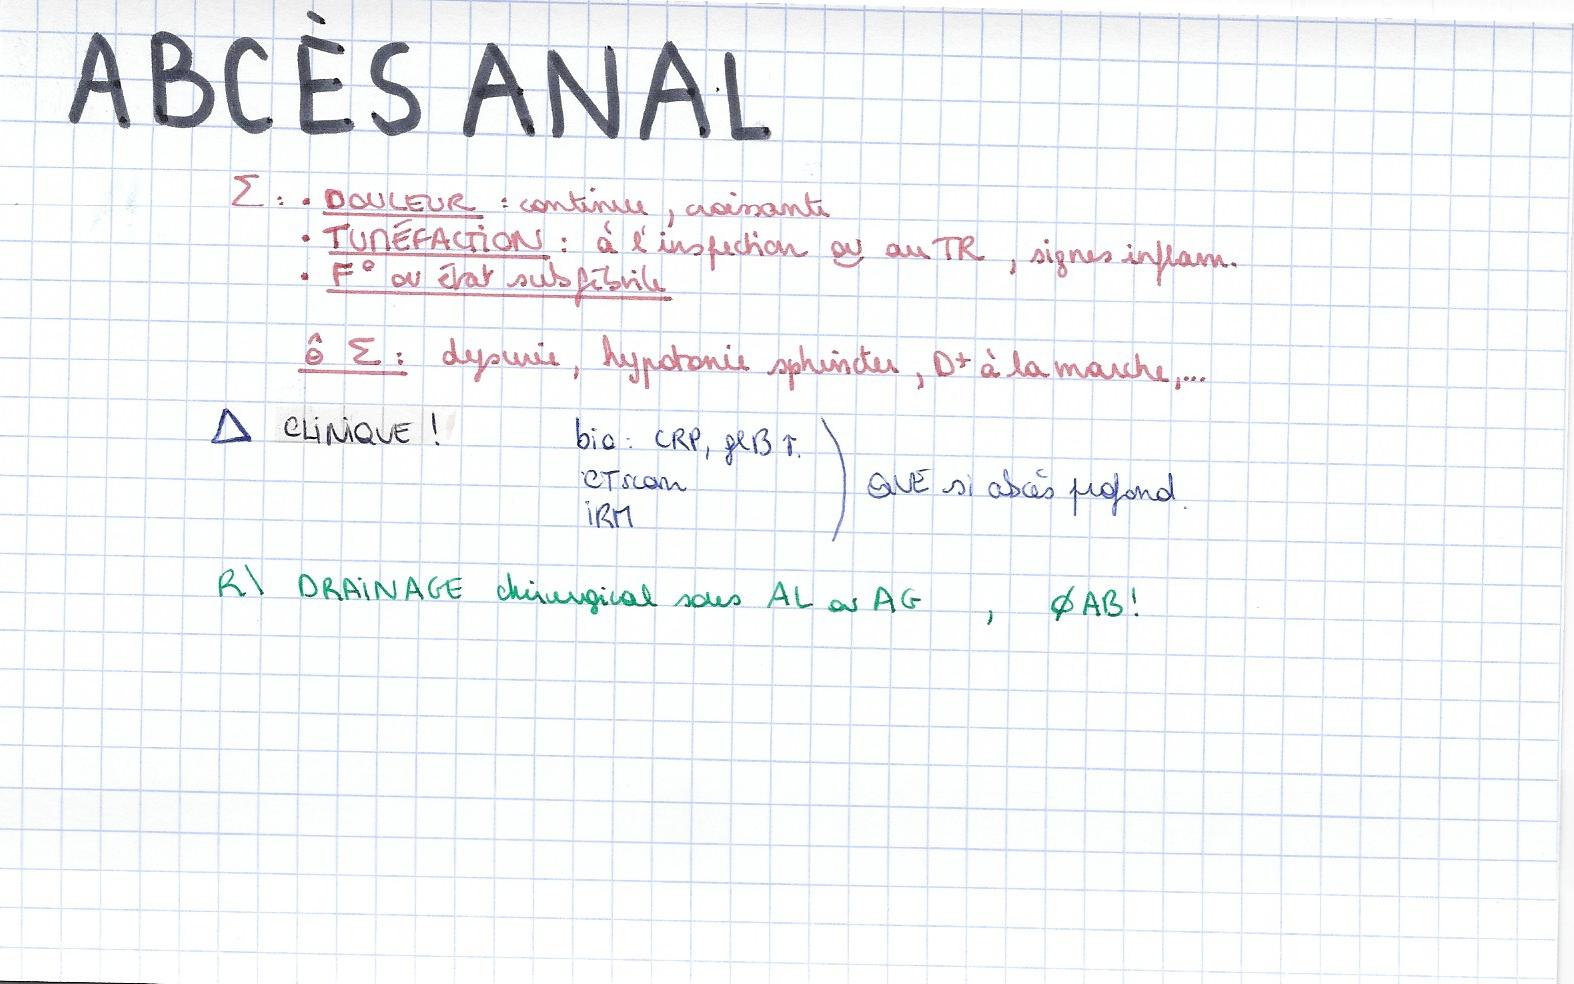 ABCÈS ANAL
Σ : • DOULEUR : continue, croissante
• TUMÉFACTION : à l'inspection ou au TR, signes inflam.
• F° ou état subfébrile
ô Σ : dysurie, hypotonie sphincter, D+ à la marche,...
Δ CLINIQUE ! bio : CRP, glB ↑.
CTscan
IRM
QUE si abcès profond.
R\ DRAINAGE chirurgical sous AL ou AG , ∅ AB!